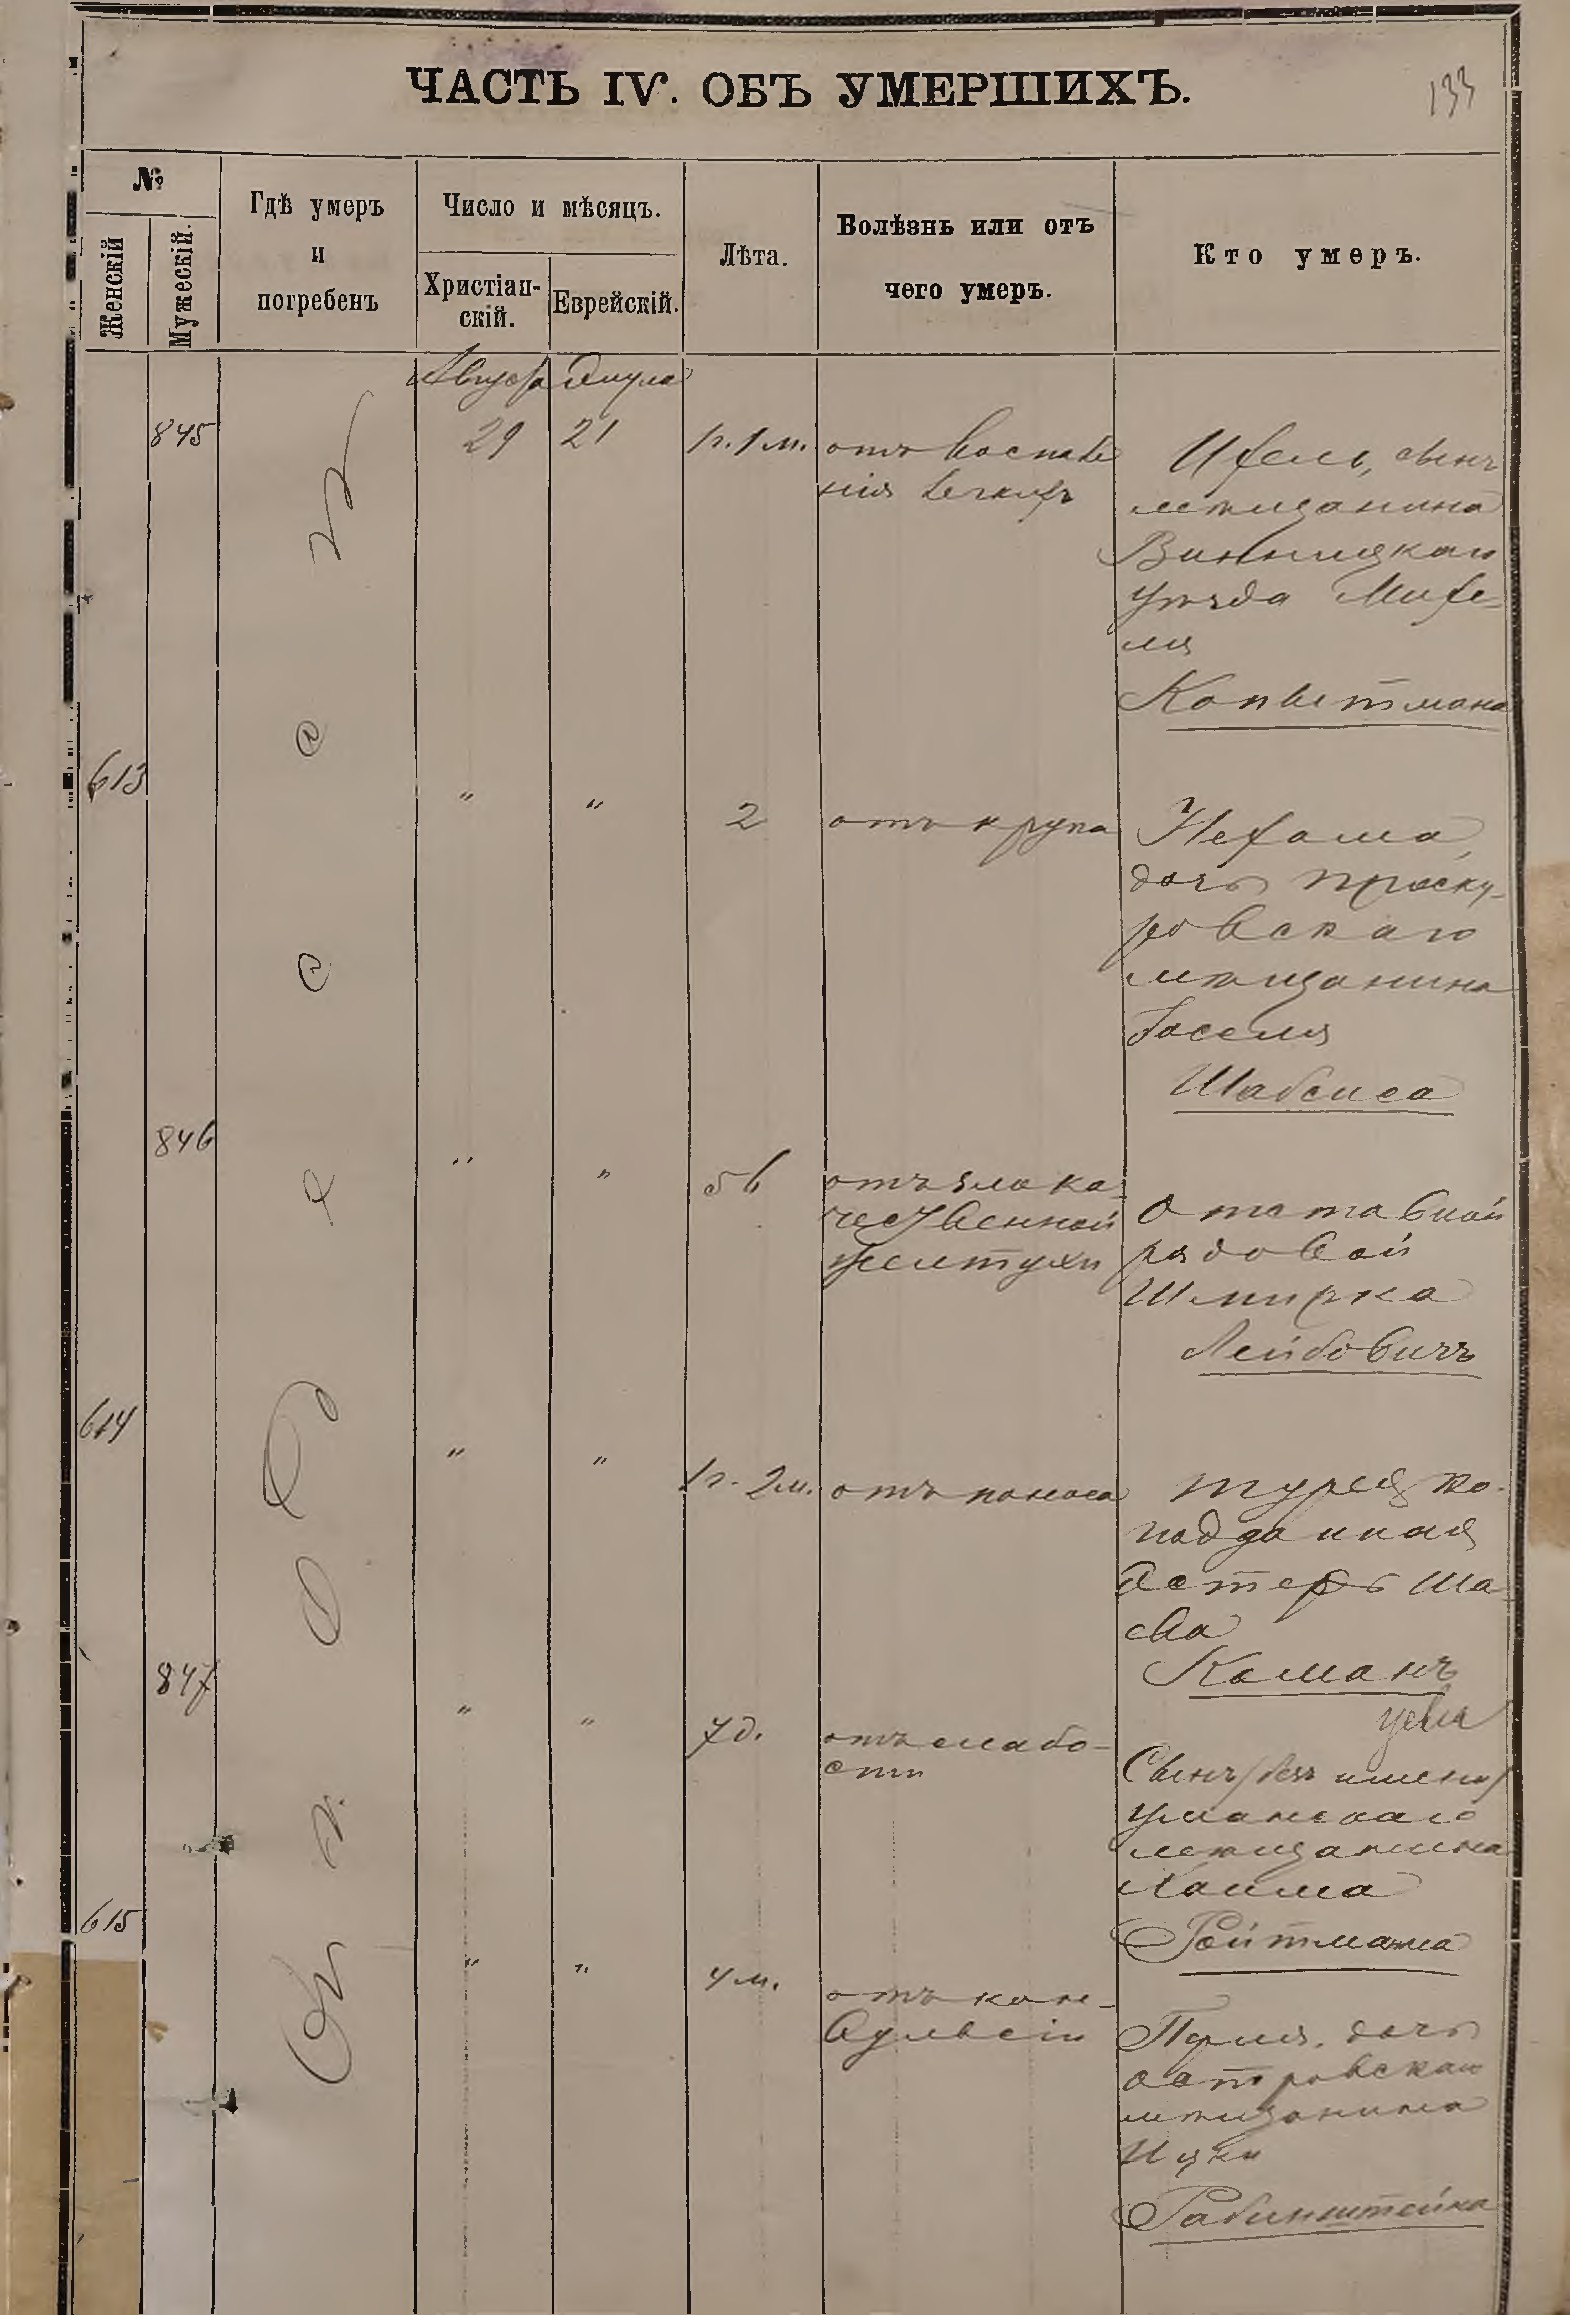 ЧАСТЬ IV. ОБЪ УМЕРШИХЪ.
133
№
Женскій
Мужескій.
Гдѣ умеръ
и
погребенъ
Число и мѣсяцъ.
Христіан-
скій.
Еврейскій.
Лѣта.
Болѣзнь или отъ
чего умеръ.
Кто умеръ.
845
29
21
1 г. 1 м.
отъ воспале
нія легкихъ
Ихель, сынъ
мѣщанина
Винницкаго
уѣзда Михе-
ля
613
"
"
2
отъ крупа
Нехама,
дочь проску-
ровскаго
мѣщанина
Іоселя
Шабсиса
846
"
"
56
отъ злока-
чественной
желтухи
Отставной
рядовой
Шмирка
Лейбовичъ
614
"
"
1 г. 2 м.
отъ поноса
турецко-
подданная
Эстеръ Ма-
сва
847
"
"
7 д.
отъ слабо-
сти
Сынъ /безъ имени/
уманскаго
мѣщанина
Хаима
Ройтмана
615
"
"
4 м.
отъ кон-
вульсіи
Перля, дочь
островскаго
мѣщанина
Ицки
Рабинштейна
Одесса